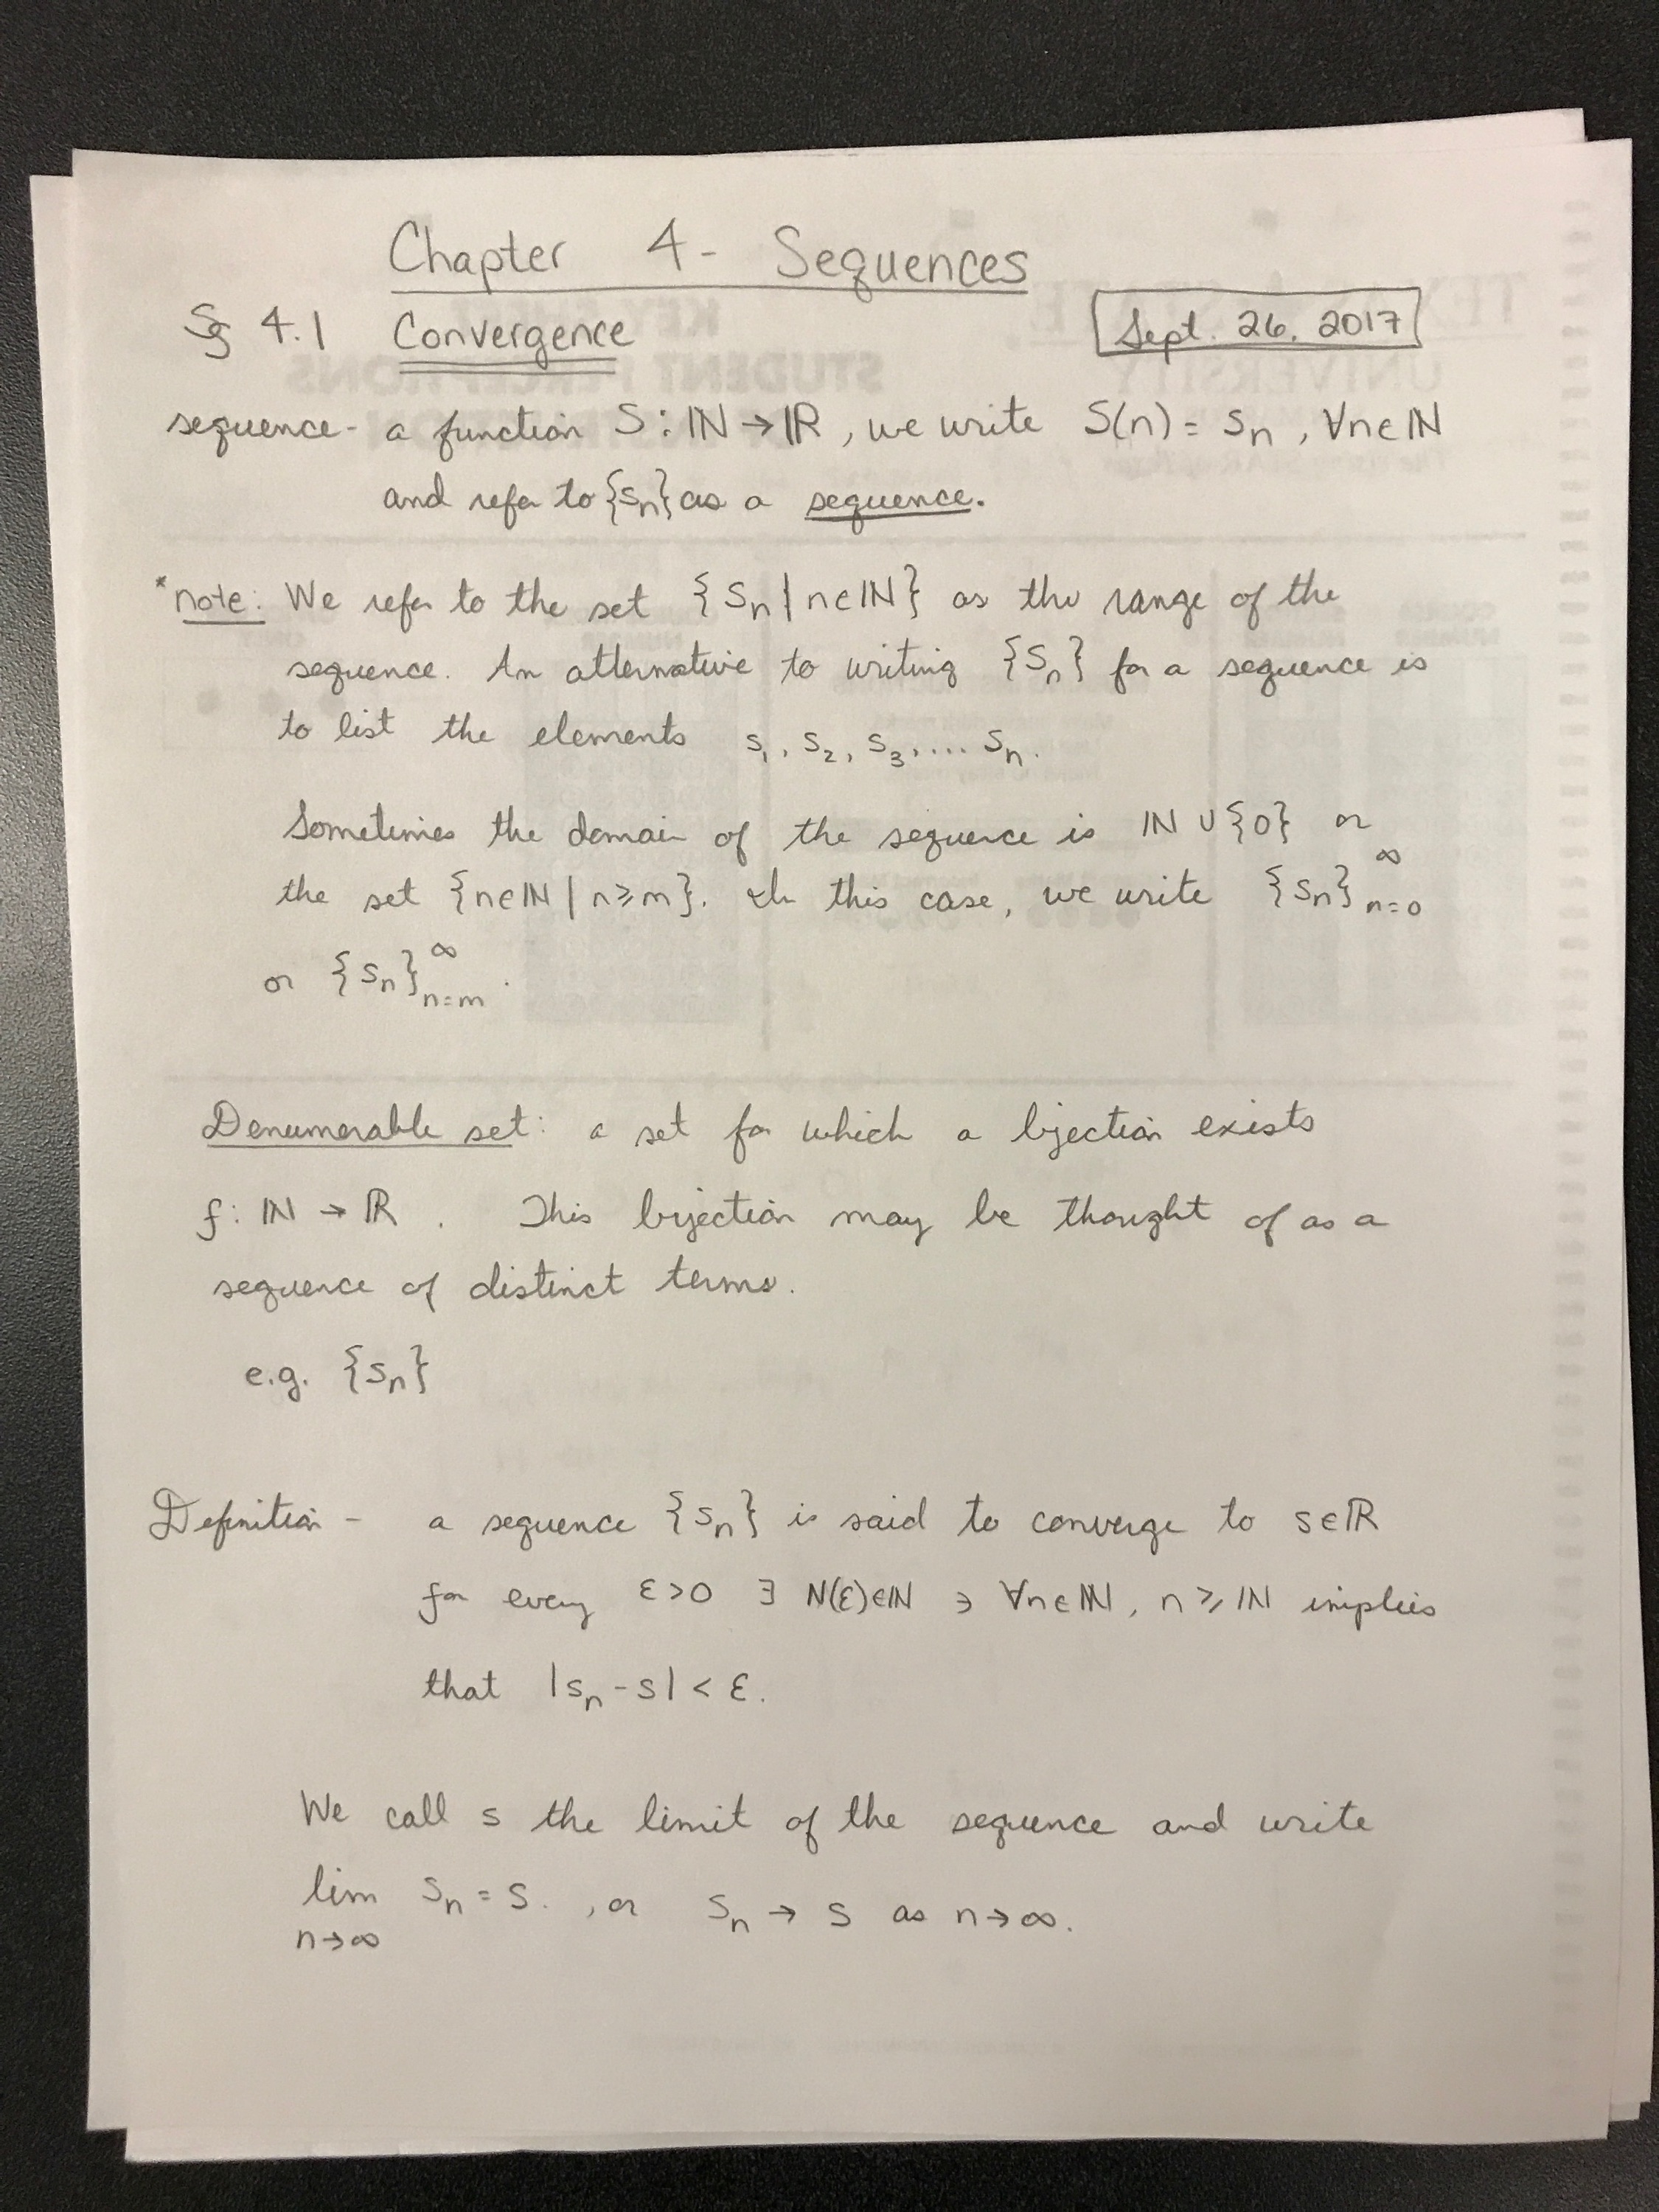 Chapter 4 - Sequences
§ 4.1 Convergence
Sept. 26, 2017
sequence - a function S: ℕ → ℝ, we write S(n) = sₙ, ∀n∈ℕ
and refer to {sₙ} as a sequence.
*note: We refer to the set {sₙ | n∈ℕ} as the range of the
sequence. An alternative to writing {sₙ} for a sequence is
to list the elements s₁, s₂, s₃, .... sₙ.
Sometimes the domain of the sequence is ℕ ∪ {0} or
the set {n∈ℕ | n ≥ m}. In this case, we write {sₙ}_{n=0}^∞
or {sₙ}_{n=m}^∞.
Denumerable set: a set for which a bijection exists
f: ℕ → ℝ. This bijection may be thought of as a
sequence of distinct terms.
e.g. {sₙ}
Definition - a sequence {sₙ} is said to converge to s∈ℝ
for every ε>0 ∃ N(ε)∈ℕ ∋ ∀n∈ℕ, n ≥ ℕ implies
that |sₙ - s| < ε.
We call s the limit of the sequence and write
lim sₙ = s. , or sₙ → s as n→∞.
n→∞